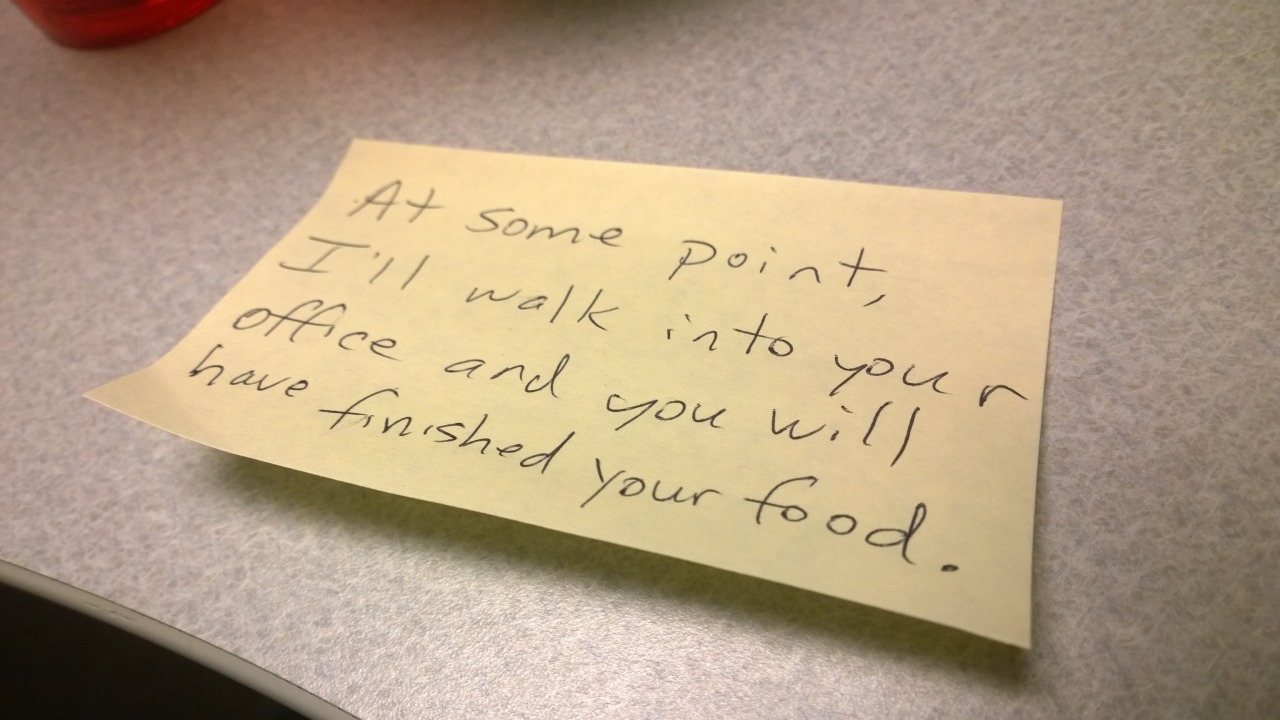 At some point,
I'll walk into your
office and you will
have finished your food.